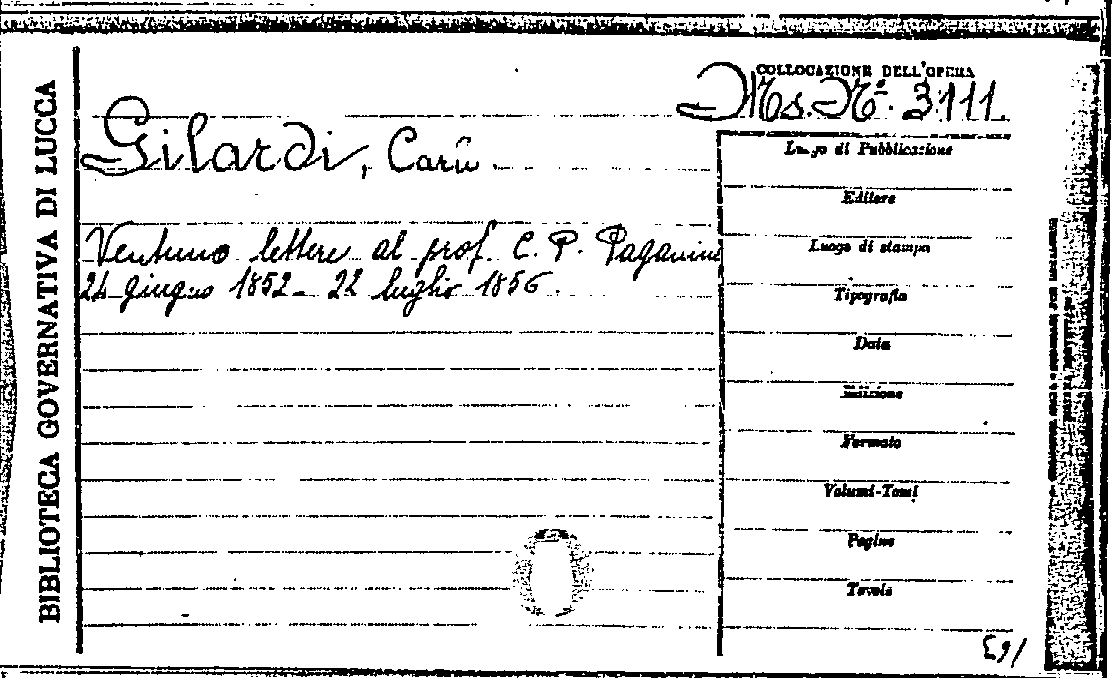 BIBLIOTECA GOVERNATIVA DI LUCCA
COLLOCAZIONE DELL'OPERA
Ms. N.º 3111
Gilardi, Carlo
Ventuno lettere al prof. C. P. Paganini
24 giugno 1852 - 22 luglio 1856.
Luogo di Pubblicazione
Editore
Luogo di stampa
Tipografia
Data
Edizione
Formato
Volumi-Tomi
Pagine
Tavole